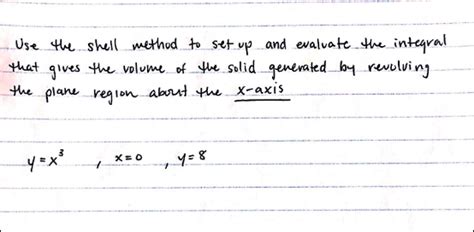 Use the shell method to set up and evaluate the integral
that gives the volume of the solid generated by revolving
the plane region about the x-axis
y = x³ , x=0 , y=8